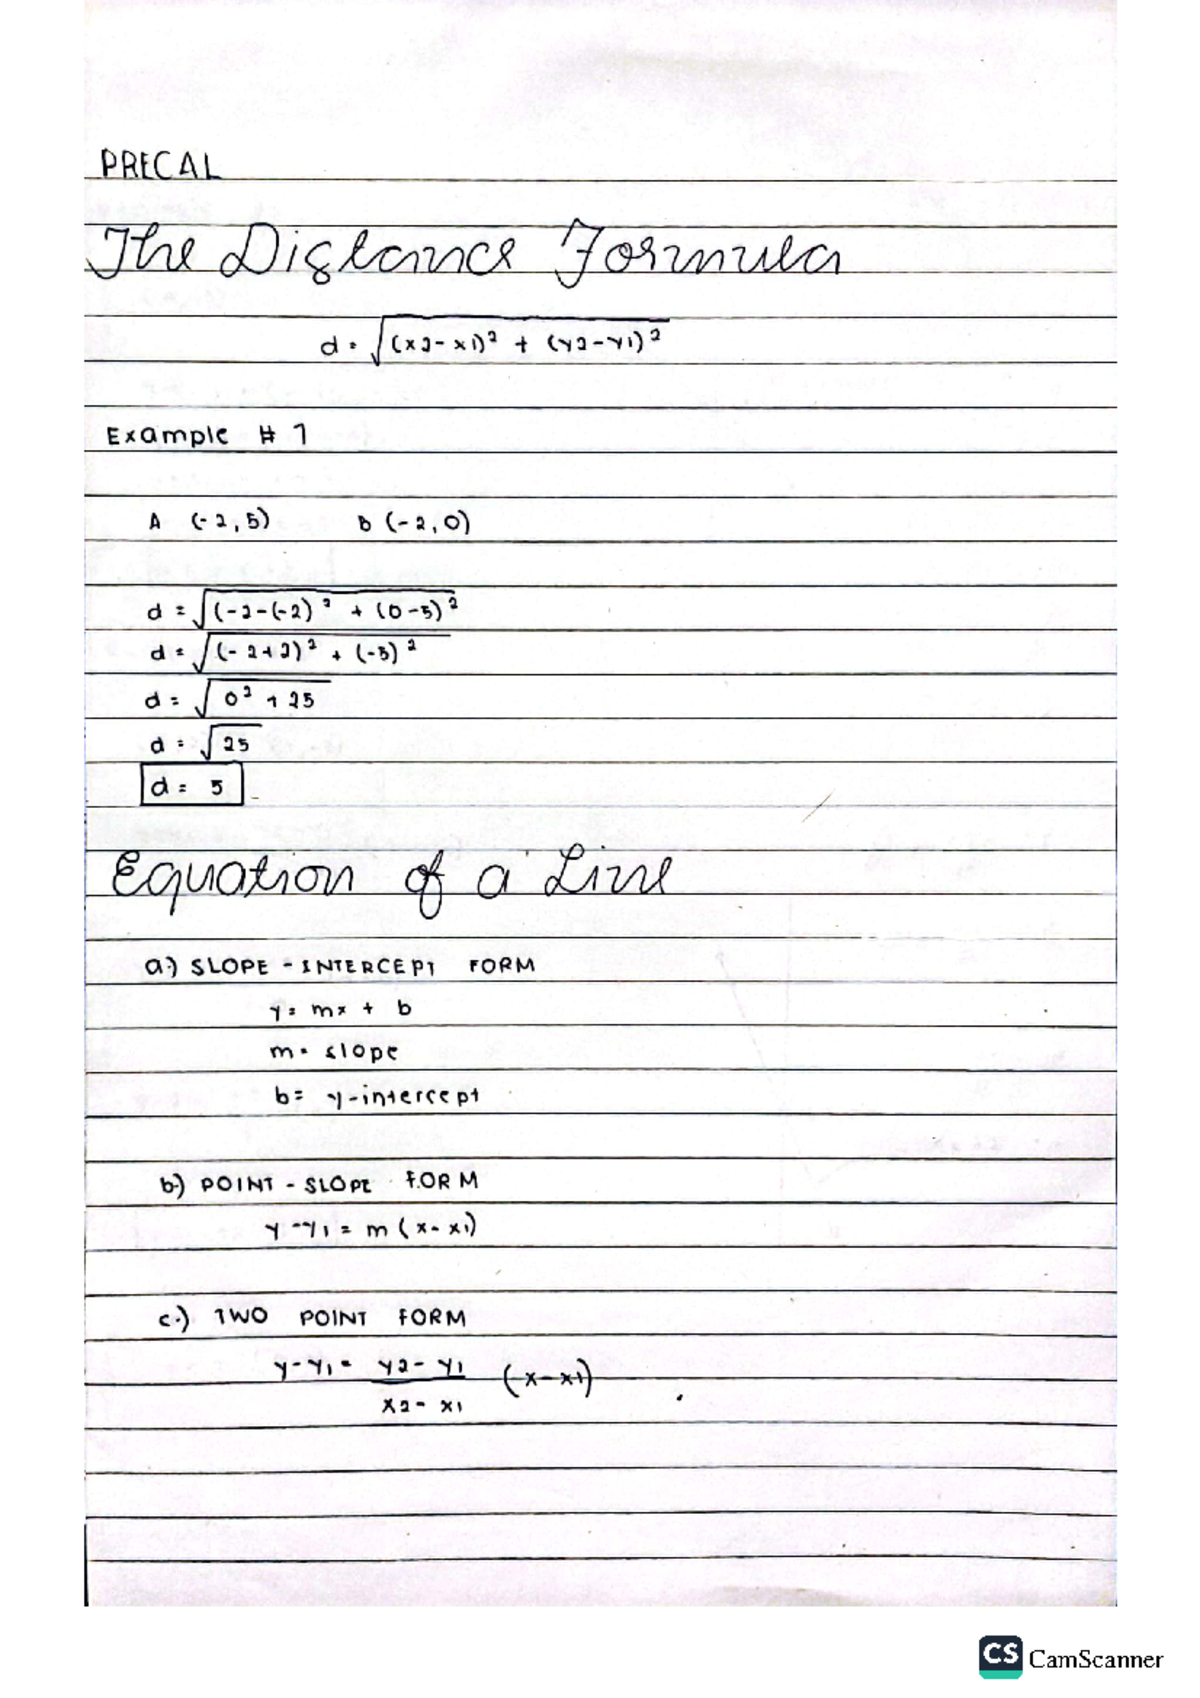 PRECAL
The Distance Formula
d = √(x2 - x1)² + (y2 - y1)²
Example # 1
A (-2, 5) B (-2, 0)
d = √(-2-(-2)² + (0-5)²
d = √(-2+2)² + (-5)²
d = √0² + 25
d = √25
d = 5
Equation of a Line
a.) SLOPE - INTERCEPT FORM
y = mx + b
m = slope
b = y-intercept
b.) POINT - SLOPE FORM
y - y1 = m (x - x1)
c.) TWO POINT FORM
y - y1 = y2 - y1 (x - x1)
x2 - x1
CS CamScanner